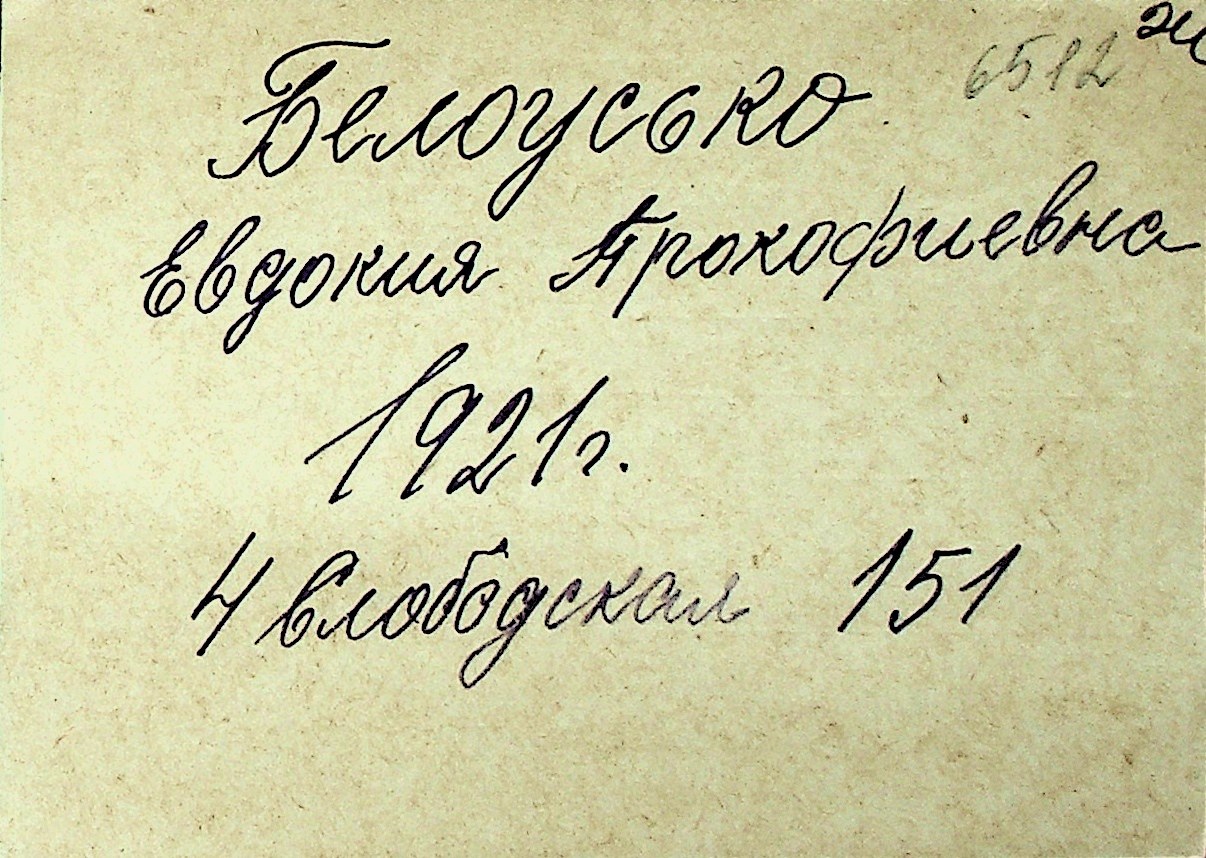 6512
Белоусько
Евдокия Прокофиевна
1921г.
4 Слободская 151